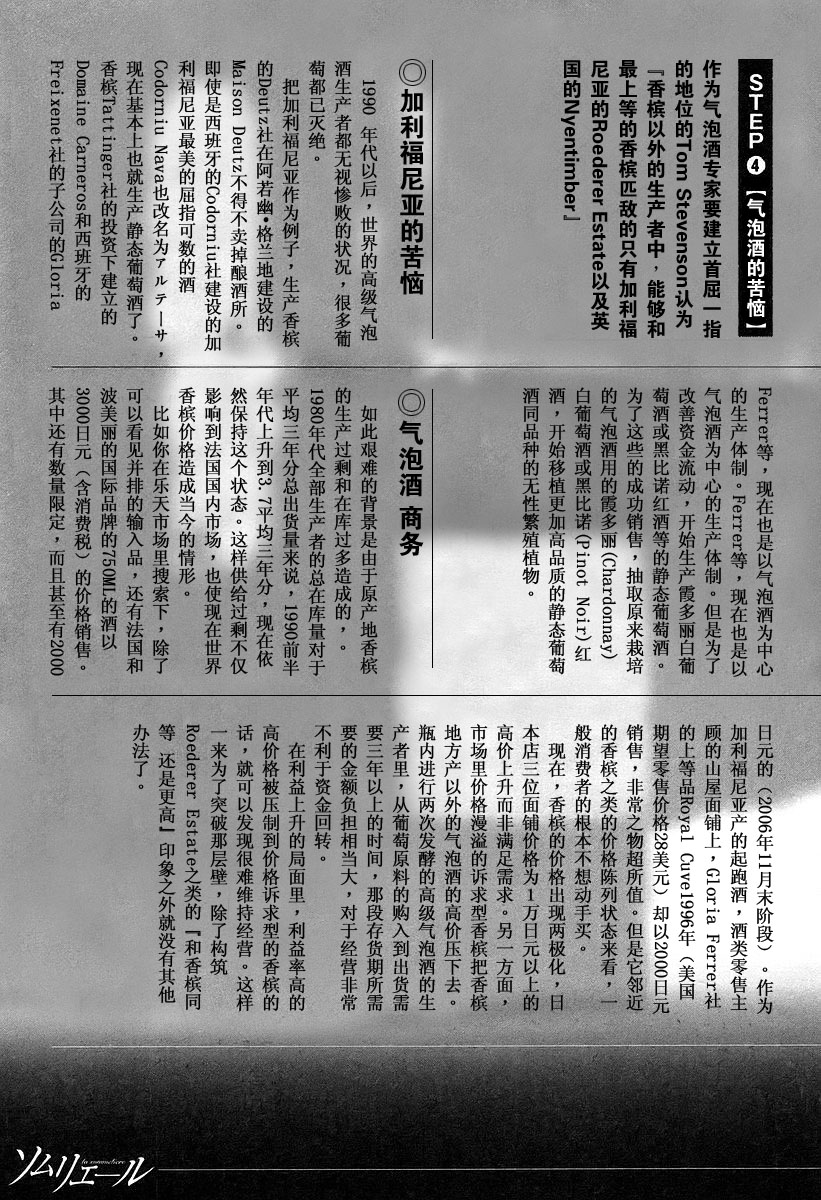 STEP ❹【气泡酒的苦恼】
作为气泡酒专家要建立首屈一指
的地位的Tom Stevenson认为
『香槟以外的生产者中，能够和
最上等的香槟匹敌的只有加利福
尼亚的Roederer Estate以及英
国的Nyentimber』
◎加利福尼亚的苦恼
1990 年代以后，世界的高级气泡
酒生产者都无视惨败的状况，很多葡
萄都已灭绝。
把加利福尼亚作为例子，生产香槟
的Deutz社在阿若幽·格兰地建设的
Maison Deutz不得不卖掉酿酒所。
即使是西班牙的Codorniu社建设的加
利福尼亚最美的屈指可数的酒
Codorniu Nava也改名为アルテーサ，
现在基本上也就生产 静态葡萄酒了。
香槟Tattinger社的投资下建立的
Domaine Carneros和西班牙的
Freixenet社的子公司的Gloria
Ferrer等，现在也是以气泡酒为中心
的生产体制。Ferrer等，现在也是以
气泡酒为中心的生产体制。但是为了
改善资金流动，开始生产霞多丽白葡
萄酒或黑比诺红酒等的静态葡萄酒。
为了这些的成功销售，抽取原来栽培
的气泡酒用的霞多丽(Chardonnay)
白葡萄酒或黑比诺(Pinot Noir)红
酒，开始移植更加高品质的静态葡萄
酒同品种的无性繁殖植物。
◎气泡酒 商务
如此艰难的背景是由于原产地香槟
的生产过剩和在库过多造成的，。
1980年代全部生产者的总在库量对于
平均三年分总出货量来说，1990前半
年代上升到3.7平均三年分，现在依
然保持这个状态。这样供给过剩不仅
影响到法国国内市场，也使现在世界
香槟价格造成当今的情形。
比如你在乐天市场里搜索下，除了
可以看见并排的输入品，还有法国和
波美丽的国际品牌的750ML的酒以
3000日元（含消费税）的价格销售。
其中还有数量限定，而且甚至有2000
日元的（2006年11月末阶段）。作为
加利福尼亚产的起跑酒，酒类零售主
顾的山屋面铺上，Gloria Ferrer社
的上等品Royal Cuve1996年（美国
期望零售价格28美元）却以2000日元
销售，非常之物超所值。但是它邻近
的香槟之类的价格陈列状态来看，一
般消费者的根本不想动手买。
现在，香槟的价格出现两极化，日
本店三位面铺价格为1万日元以上的
高价上升而非满足需求。另一方面，
市场里价格漫溢的诉求型香槟把香槟
地方产以外的气泡酒的高价压下去。
瓶内进行两次发酵的高级气泡酒的生
产者里，从葡萄原料的购入到出货需
要三年以上的时间，那段存货期所需
要的金额负担相当大，对于经营非常
不利于资金回转。
在利益上升的局面里，利益率高的
高价格被压制到价格诉求型的香槟的
话，就可以发现很难维持经营。这样
一来为了突破那层壁，除了构筑
Roederer Estate之类的『和香槟同
等 还是更高』印象之外就没有其他
办法了。
ソムリエール
la sommeliere